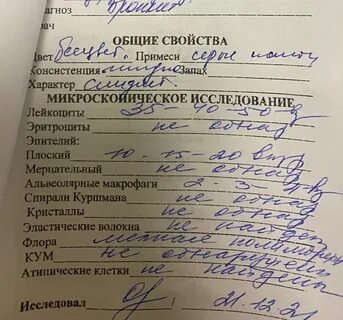 агноз бронхит
рач
ОБЩИЕ СВОЙСТВА
Цвет бесцвет. Примеси серые комочки
Консистенция Запах
Характер слизист.
МИКРОСКОПИЧЕСКОЕ ИССЛЕДОВАНИЕ
Лейкоциты 35 - 40 - 50
Эритроциты не обнар
Эпителий:
Плоский 10 - 15 - 20 в п/з
Мерцательный не обнар
Альвеолярные макрофаги 2 - 3
Спирали Куршмана не обнар
Кристаллы не обнар
Эластические волокна не найдены
Флора мелкая
КУМ не обнаружены
Атипические клетки не найдены
Исследовал 21.12.21